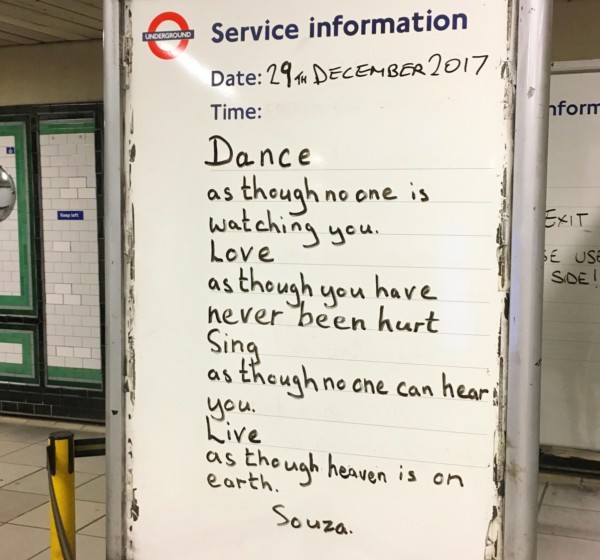 UNDERGROUND
Service information
Date: 29TH DECEMBER 2017
Time:
Dance
as though no one is
watching you.
Love
as though you have
never been hurt
Sing
as though no one can hear
you.
Live
as though heaven is on
earth.
Souza.
Keep left
EXIT
SIDE!